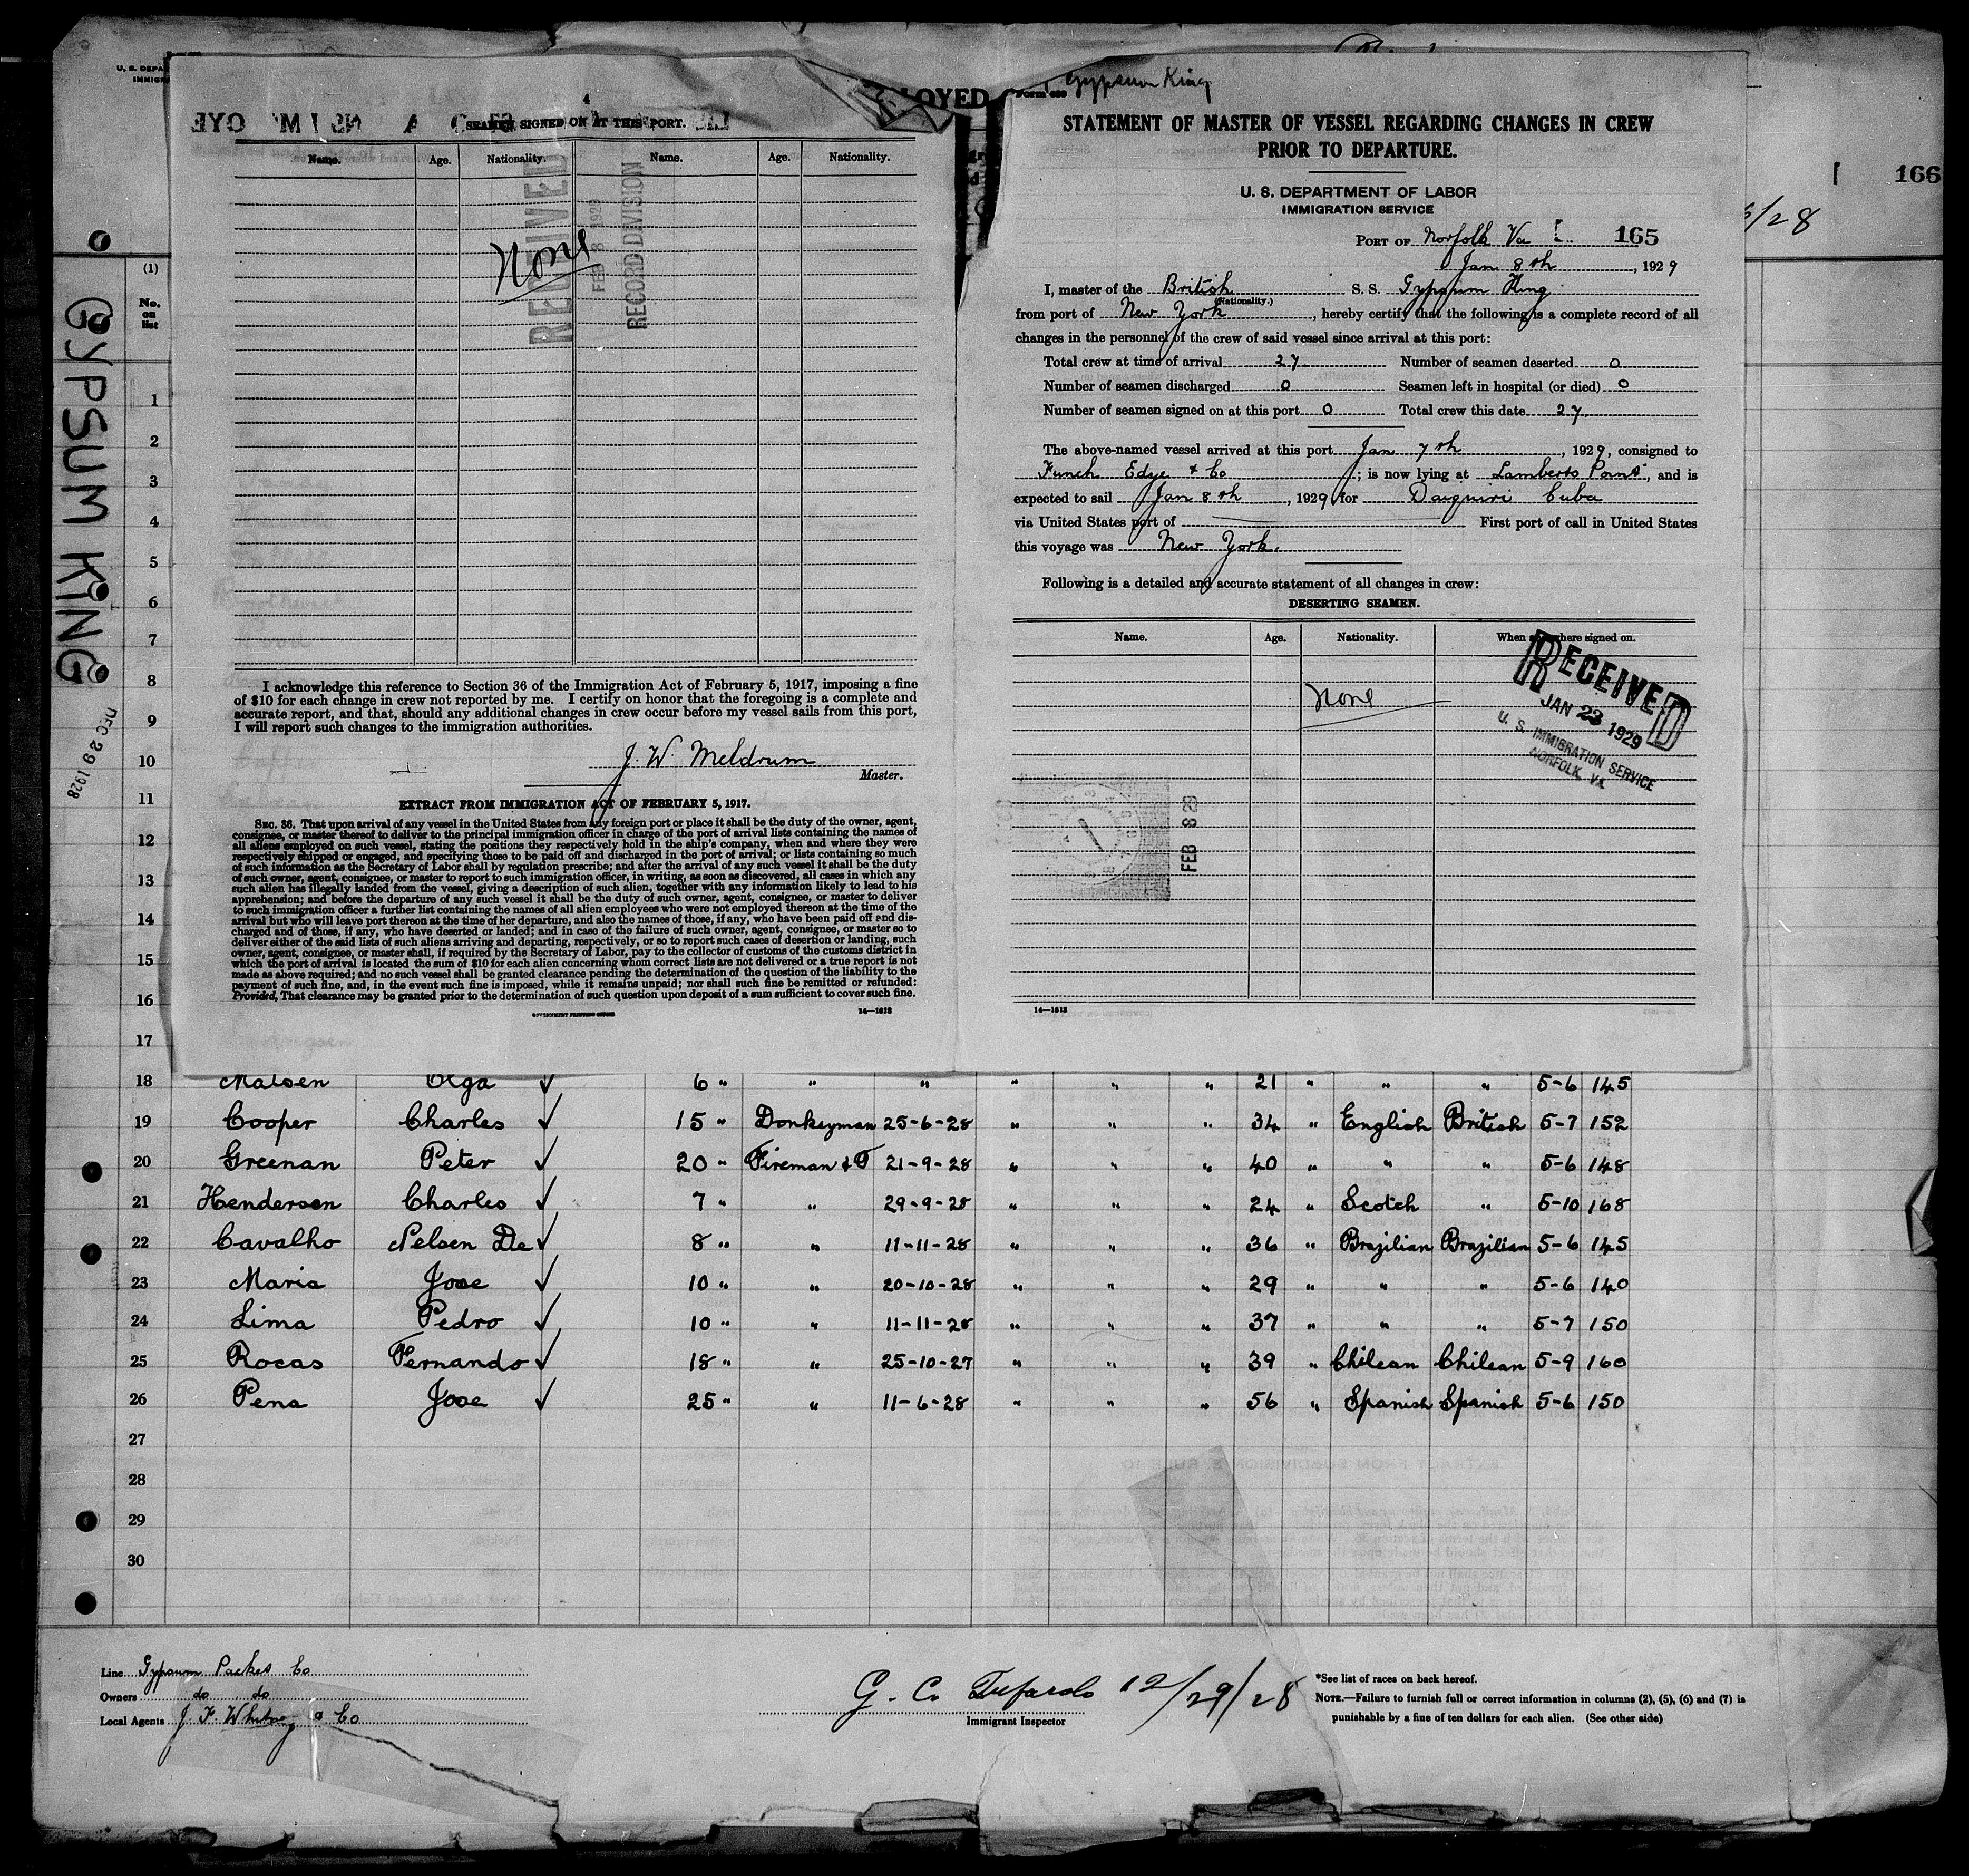 U. S. DEPA
IMMIG
LOYED
166
/28
GYPSUM KING
DEC 29 1928
(1)
No.
on
list
1
2
3
4
5
6
7
8
9
10
11
12
13
14
15
16
17
4
SEAMEN SIGNED ON AT THIS PORT.
Name. Age. Nationality. Name. Age. Nationality.
RECEIVED
FEB 8 1929
RECORD DIVISION
None
I acknowledge this reference to Section 36 of the Immigration Act of February 5, 1917, imposing a fine
of $10 for each change in crew not reported by me. I certify on honor that the foregoing is a complete and
accurate report, and that, should any additional changes in crew occur before my vessel sails from this port,
I will report such changes to the immigration authorities.
J. W. Meldrum
Master.
EXTRACT FROM IMMIGRATION ACT OF FEBRUARY 5, 1917.
SEC. 36. That upon arrival of any vessel in the United States from any foreign port or place it shall be the duty of the owner, agent,
consignee, or master thereof to deliver to the principal immigration officer in charge of the port of arrival lists containing the names of
all aliens employed on such vessel, stating the positions they respectively hold in the ship's company, when and where they were
respectively shipped or engaged, and specifying those to be paid off and discharged in the port of arrival; or lists containing so much
of such information as the Secretary of Labor shall by regulation prescribe; and after the arrival of any such vessel it shall be the duty
of such owner, agent, consignee, or master to report to such immigration officer, in writing, as soon as discovered, all cases in which any
such alien has illegally landed from the vessel, giving a description of such alien, together with any information likely to lead to his
apprehension; and before the departure of any such vessel it shall be the duty of such owner, agent, consignee, or master to deliver
to such immigration officer a further list containing the names of all alien employees who were not employed thereon at the time of the
arrival but who will leave port thereon at the time of her departure, and also the names of those, if any, who have been paid off and dis-
charged and of those, if any, who have deserted or landed; and in case of the failure of such owner, agent, consignee, or master so to
deliver either of the said lists of such aliens arriving and departing, respectively, or so to report such cases of desertion or landing, such
owner, agent, consignee, or master shall, if required by the Secretary of Labor, pay to the collector of customs of the customs district in
which the port of arrival is located the sum of $10 for each alien concerning whom correct lists are not delivered or a true report is not
made as above required; and no such vessel shall be granted clearance pending the determination of the question of the liability to the
payment of such fine, and, in the event such fine is imposed, while it remains unpaid; nor shall such fine be remitted or refunded:
Provided, That clearance may be granted prior to the determination of such question upon deposit of a sum sufficient to cover such fine.
GOVERNMENT PRINTING OFFICE
14—1613
Form 689 Gypsum King
STATEMENT OF MASTER OF VESSEL REGARDING CHANGES IN CREW
PRIOR TO DEPARTURE.
U. S. DEPARTMENT OF LABOR
IMMIGRATION SERVICE
PORT OF Norfolk Va 165
Jan 8th, 1929
I, master of the British S. S. Gypsum King
(Nationality.)
from port of New York, hereby certify that the following is a complete record of all
changes in the personnel of the crew of said vessel since arrival at this port:
Total crew at time of arrival 27 Number of seamen deserted 0
Number of seamen discharged 0 Seamen left in hospital (or died) 0
Number of seamen signed on at this port 0 Total crew this date 27
The above-named vessel arrived at this port Jan 7th, 1929, consigned to
Funch Edye & Co; is now lying at Lamberts Point, and is
expected to sail Jan 8th, 1929 for Daiquiri Cuba
via United States port of First port of call in United States
this voyage was New York.
Following is a detailed and accurate statement of all changes in crew:
DESERTING SEAMEN.
Name. Age. Nationality. When and where signed on.
None
RECEIVED
JAN 23 1929
U. S. IMMIGRATION SERVICE
NORFOLK, VA.
FEB 8 29
14—1613
18 Matsen Olga ✓ 6 " " " " " " 21 " " " 5-6 145
19 Cooper Charles ✓ 15 " Donkeyman 25-6-28 " " " 34 " English British 5-7 152
20 Greenan Peter ✓ 20 " Fireman & T 21-9-28 " " " 40 " " " 5-6 148
21 Henderson Charles ✓ 7 " " 29-9-28 " " " 24 " Scotch " 5-10 168
22 Cavalho Nelsen De ✓ 8 " " 11-11-28 " " " 36 " Brazilian Brazilian 5-6 145
23 Maria Jose ✓ 10 " " 20-10-28 " " " 29 " " " 5-6 140
24 Lima Pedro ✓ 10 " " 11-11-28 " " " 37 " " " 5-7 150
25 Rocas Fernando ✓ 18 " " 25-10-27 " " " 39 " Chilean Chilean 5-9 160
26 Pena Jose ✓ 25 " " 11-6-28 " " " 56 " Spanish Spanish 5-6 150
27
28
29
30
Line Gypsum Packet Co
Owners do do
Local Agents J. F. Whitney & Co
G. C. 12/29/28
Immigrant Inspector
*See list of races on back hereof.
NOTE.—Failure to furnish full or correct information in columns (2), (5), (6) and (7) is
punishable by a fine of ten dollars for each alien. (See other side)